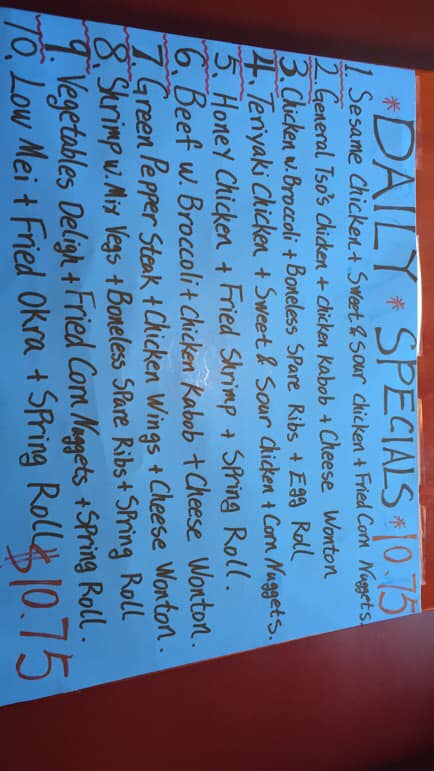 *DAILY * SPECIALS * 10.75
1. Sesame Chicken + Sweet & Sour chicken + Fried Corn Nuggets.
2. General Tso's chicken + chicken Kabob + Cheese Wonton
3. Chicken w. Broccoli + Boneless Spare Ribs + Egg Roll
4. Teriyaki Chicken + Sweet & Sour Chicken + Corn Nuggets.
5. Honey Chicken + Fried Shrimp + Spring Roll.
6. Beef w. Broccoli + Chicken Kabob + Cheese Wonton.
7. Green Pepper Steak + Chicken Wings + Cheese Wonton.
8. Shrimp w. Mix Vegs + Boneless Spare Ribs + Spring Roll
9. Vegetables Deligh + Fried Corn Nuggets + Spring Roll.
10. Low Mei + Fried Okra + Spring Roll $10.75